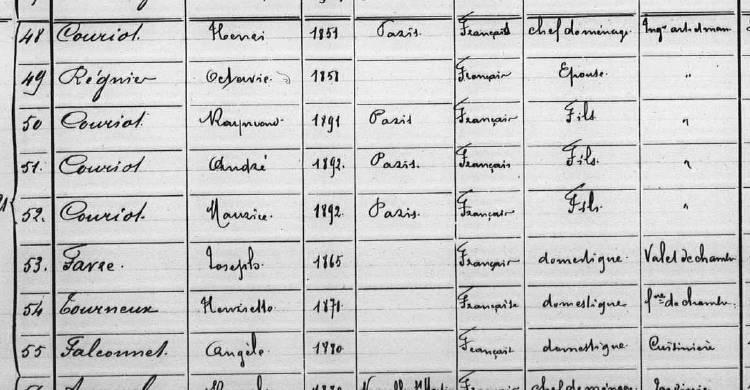 48 Couriot Henri 1851 Paris. Français chef de ménage Ingr arts et man
49 Régnier Octavie 1858 Français Epouse "
50 Couriot Raymond 1891 Paris Français Fils "
51. Couriot André 1892. Paris. Français Fils. "
52. Couriot Maurice. 1892. Paris. Français Fils "
53. Favre. Joseph. 1865 Français domestique. Valet de chambr
54 Tourneux Henriette 1871 Française domestique fme de chambr.
55 Falconnet. Angèle 1880 Français domestique. Cuisinière
chef de ménage